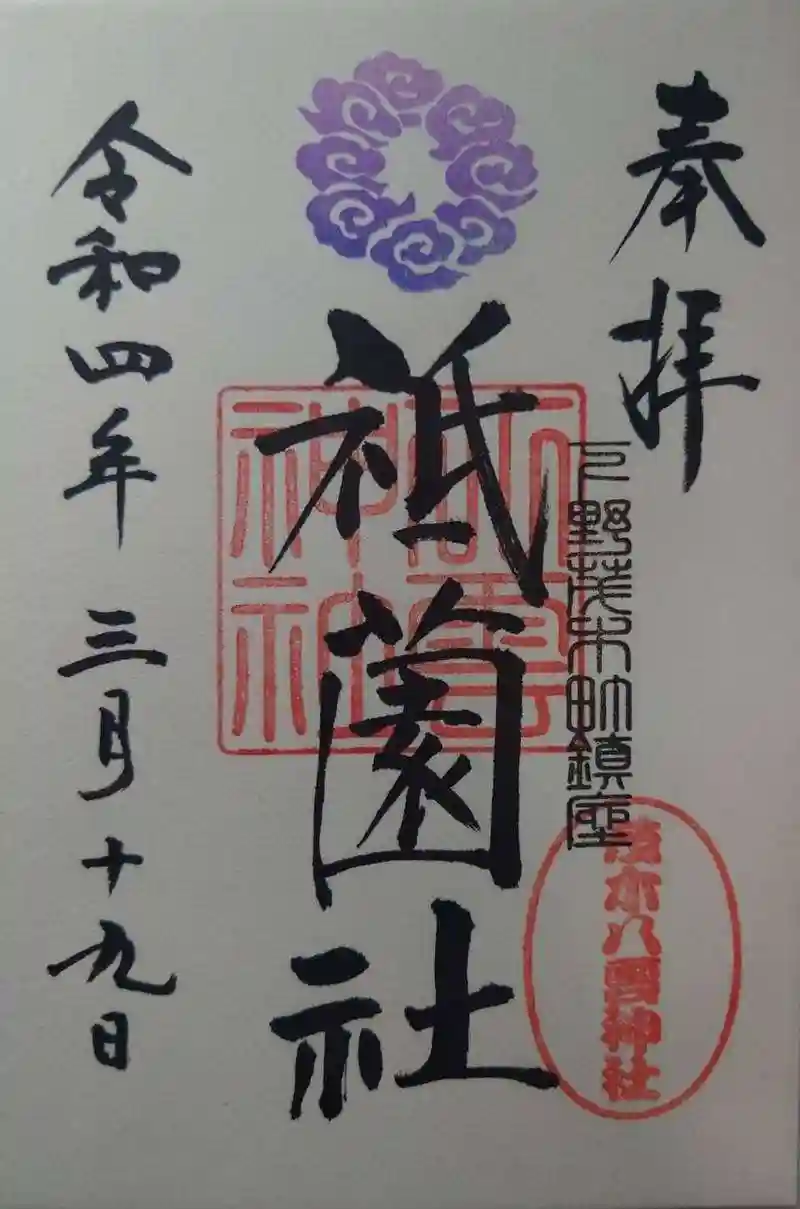 奉拝
下野茂木町鎮座
茂木八雲神社
祗薗社
雲
神社
令和四年三月十九日